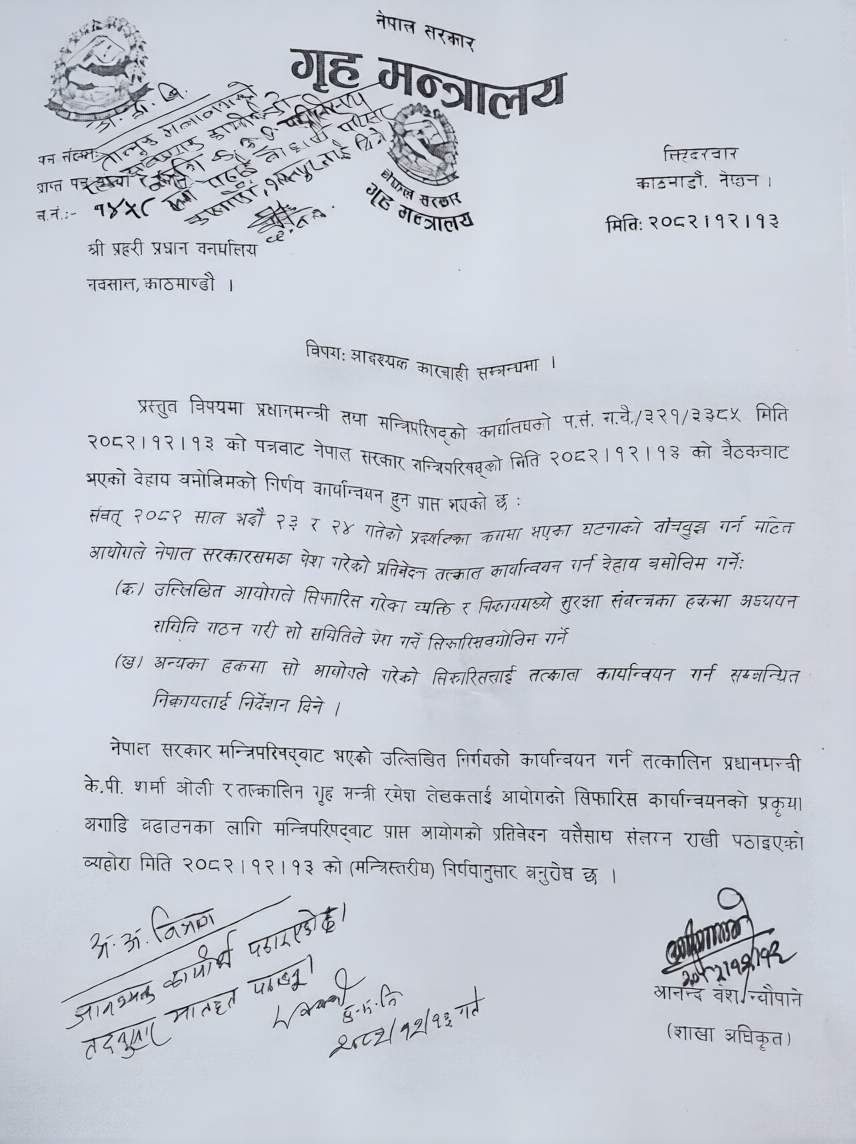 नेपाल सरकार
गृह मन्त्रालय
प्राप्त पत्र
च.नं.:- १४५८
नेपाल सरकार
गृह मन्त्रालय
सिंहदरवार
काठमाडौं, नेपाल ।
मिति: २०८२।१२।१३
श्री प्रहरी प्रधान कार्यालय
नक्साल, काठमाण्डौ ।
विषय: आवश्यक कारवाही सम्बन्धमा ।
प्रस्तुत विषयमा प्रधानमन्त्री तथा मन्त्रिपरिषद्को कार्यालयको प.सं. म.वै./३२१/३३८५ मिति
२०८२।१२।१३ को पत्रबाट नेपाल सरकार मन्त्रिपरिषद्को मिति २०८२।१२।१३ को बैठकबाट
भएको देहाय बमोजिमको निर्णय कार्यान्वयन हुन प्राप्त भएको छ :
संवत् २०८२ साल भदौ २३ र २४ गतेको प्रदर्शनका क्रममा भएका घटनाको जाँचबुझ गर्न गठित
आयोगले नेपाल सरकारसमक्ष पेश गरेको प्रतिवेदन तत्काल कार्यान्वयन गर्न देहाय बमोजिम गर्ने:
(क) उल्लिखित आयोगले सिफारिस गरेका व्यक्ति र निकायमध्ये सुरक्षा संयन्त्रका हकमा अध्ययन
समिति गठन गरी सो समितिले पेश गर्ने सिफारिसबमोजिम गर्ने
(ख) अन्यका हकमा सो आयोगले गरेको सिफारिसलाई तत्काल कार्यान्वयन गर्न सम्बन्धित
निकायलाई निर्देशन दिने ।
नेपाल सरकार मन्त्रिपरिषद्वाट भएको उल्लिखित निर्णयको कार्यान्वयन गर्न तत्कालिन प्रधानमन्त्री
के.पी. शर्मा ओली र तत्कालिन गृह मन्त्री रमेश लेखकलाई आयोगको सिफारिस कार्यान्वयनको प्रकृया
अगाडि बढाउनका लागि मन्त्रिपरिषद्वाट प्राप्त आयोगको प्रतिवेदन यसैसाथ संलग्न राखी पठाइएको
व्यहोरा मिति २०८२।१२।१३ को (मन्त्रिस्तरीय) निर्णयानुसार अनुरोध छ ।
अ.अ. विभाग
आवश्यक कार्यार्थ पठाइएको छ।
तदनुसार मातहत पठाउनु।
प्र.म.नि
२०८२/१२/१३ गते
२०८२।१२।१३
आनन्द न्यौपाने
(शाखा अधिकृत)